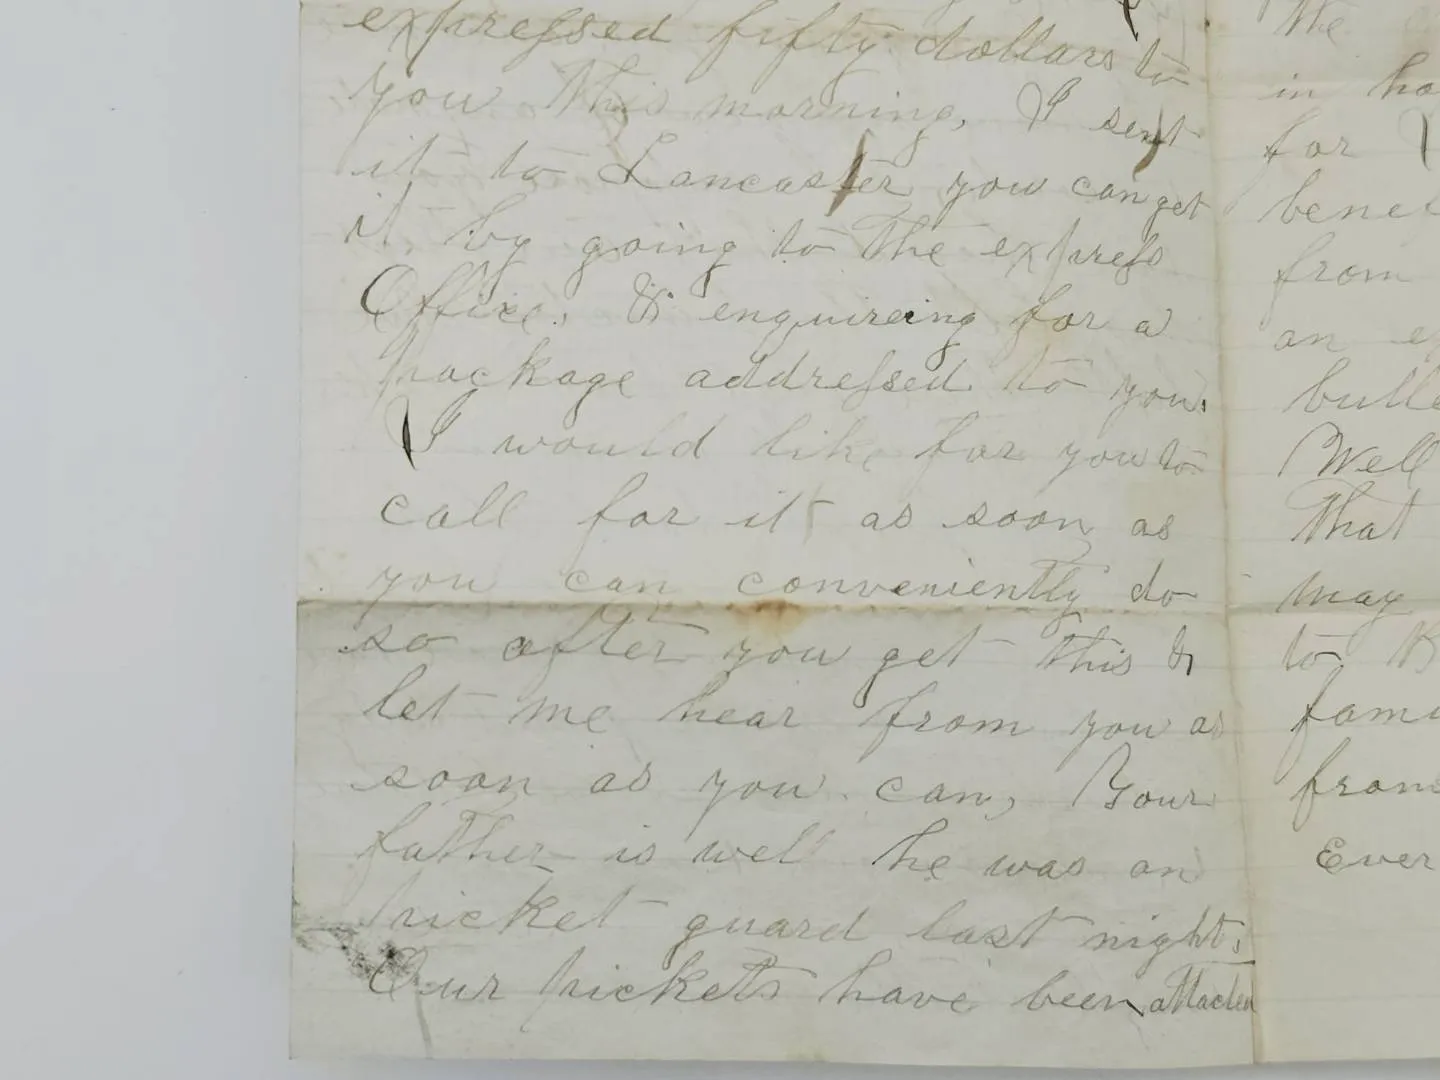 expressed fifty dollars to
you this morning, I sent
it to Lancaster you can get
it by going to the express
Office, & enquireing for a
package addressed to you.
I would like for you to
call for it as soon as
you can conveniently do
so after you get this &
let me hear from you as
soon as you can, Your
father is well he was on
picket guard last night,
Our pickets have been attacked
The
in
for
bene
from
an
bull
Well
That
may
to
fami
from
Ever